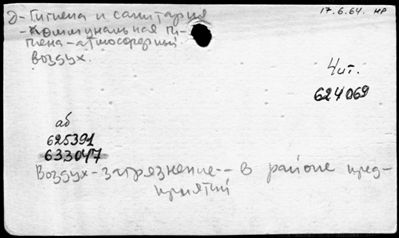 2-Гигиена и санитария
17.6.64. НР
-Коммунальная ги-
гиена-атмосферный
воздух.
Чит.
624069
аб
625391
633047
Воздух-загрязнение-- в районе пред-
приятий